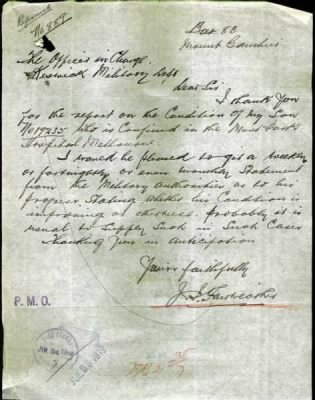 No 887
Box 83
Mount Gambier
The Officer in Charge
Keswick Military Dept
Dear Sir
I thank you
for the report on the Condition of my Son
No 19235 who is confined in the Mont Park
Hospital Melbourne
I would be pleased to get a weekly
or fortnightly or even monthly Statement
from the Military Authorities as to his
progress, stating whether his Condition is
improving or otherwise. Probably it is
usual to supply such in such Cases
Thanking you in anticipation
Yours faithfully
J. S. Fairweather
P. M. O.